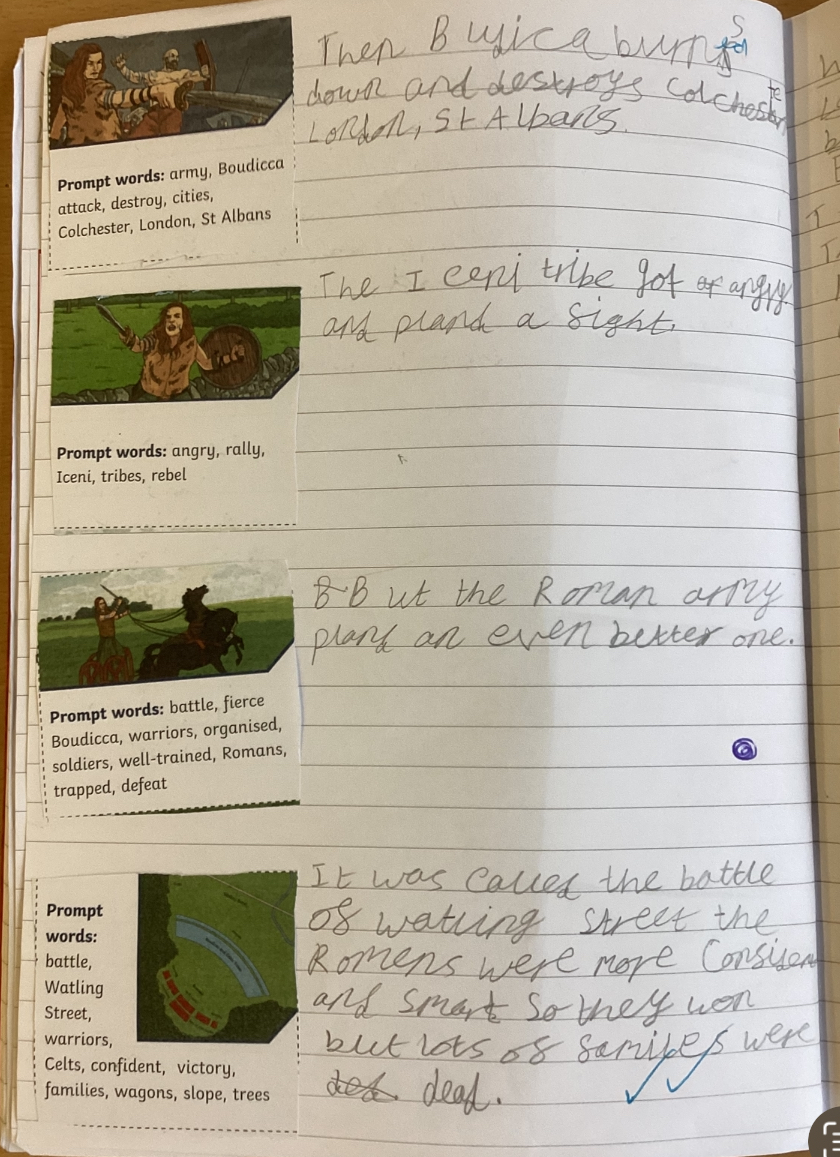 Then Bujica burns
down and destroys Colchester
London, St Albans.
Prompt words: army, Boudicca
attack, destroy, cities,
Colchester, London, St Albans
The Iceni tribe got angry
and pland a fight.
Prompt words: angry, rally,
Iceni, tribes, rebel
But the Roman army
pland an even better one.
Prompt words: battle, fierce
Boudicca, warriors, organised,
soldiers, well-trained, Romans,
trapped, defeat
It was called the battle
of watling street the
Romens were more
and smart so they won
but lots of familes were
dead.
Prompt
words:
battle,
Watling
Street,
warriors,
Celts, confident, victory,
families, wagons, slope, trees